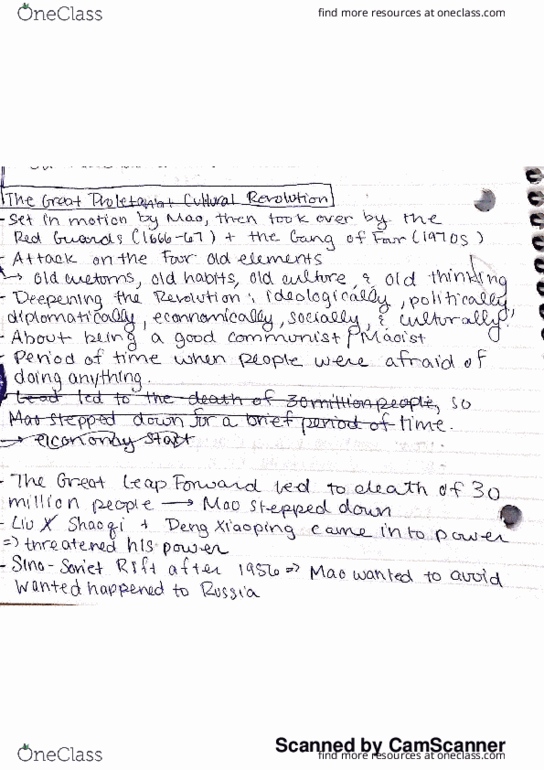 OneClass
find more resources at oneclass.com
The Great Proletariat Cultural Revolution
- Set in motion by Mao, then took over by the
Red Guards (1666-67) + the Gang of Four (1970s)
- Attack on the Four old elements
→ old customs, old habits, old culture & old thinking
- Deepening the Revolution: ideologically, politically,
diplomatically, economically, socially, & culturally!
- About being a good communist / Maoist
- Period of time when people were afraid of
doing anything.
- Lead led to the death of 30 million people, so
Mao stepped down for a brief period of time.
→ start
- The Great Leap Forward led to death of 30
million people → Mao stepped down
- Liu X Shaoqi + Deng Xiaoping came into power
=> threatened his power
- Sino-Soviet Rift after 1956 => Mao wanted to avoid
wanted happened to Russia
Scanned by CamScanner
OneClass
find more resources at oneclass.com